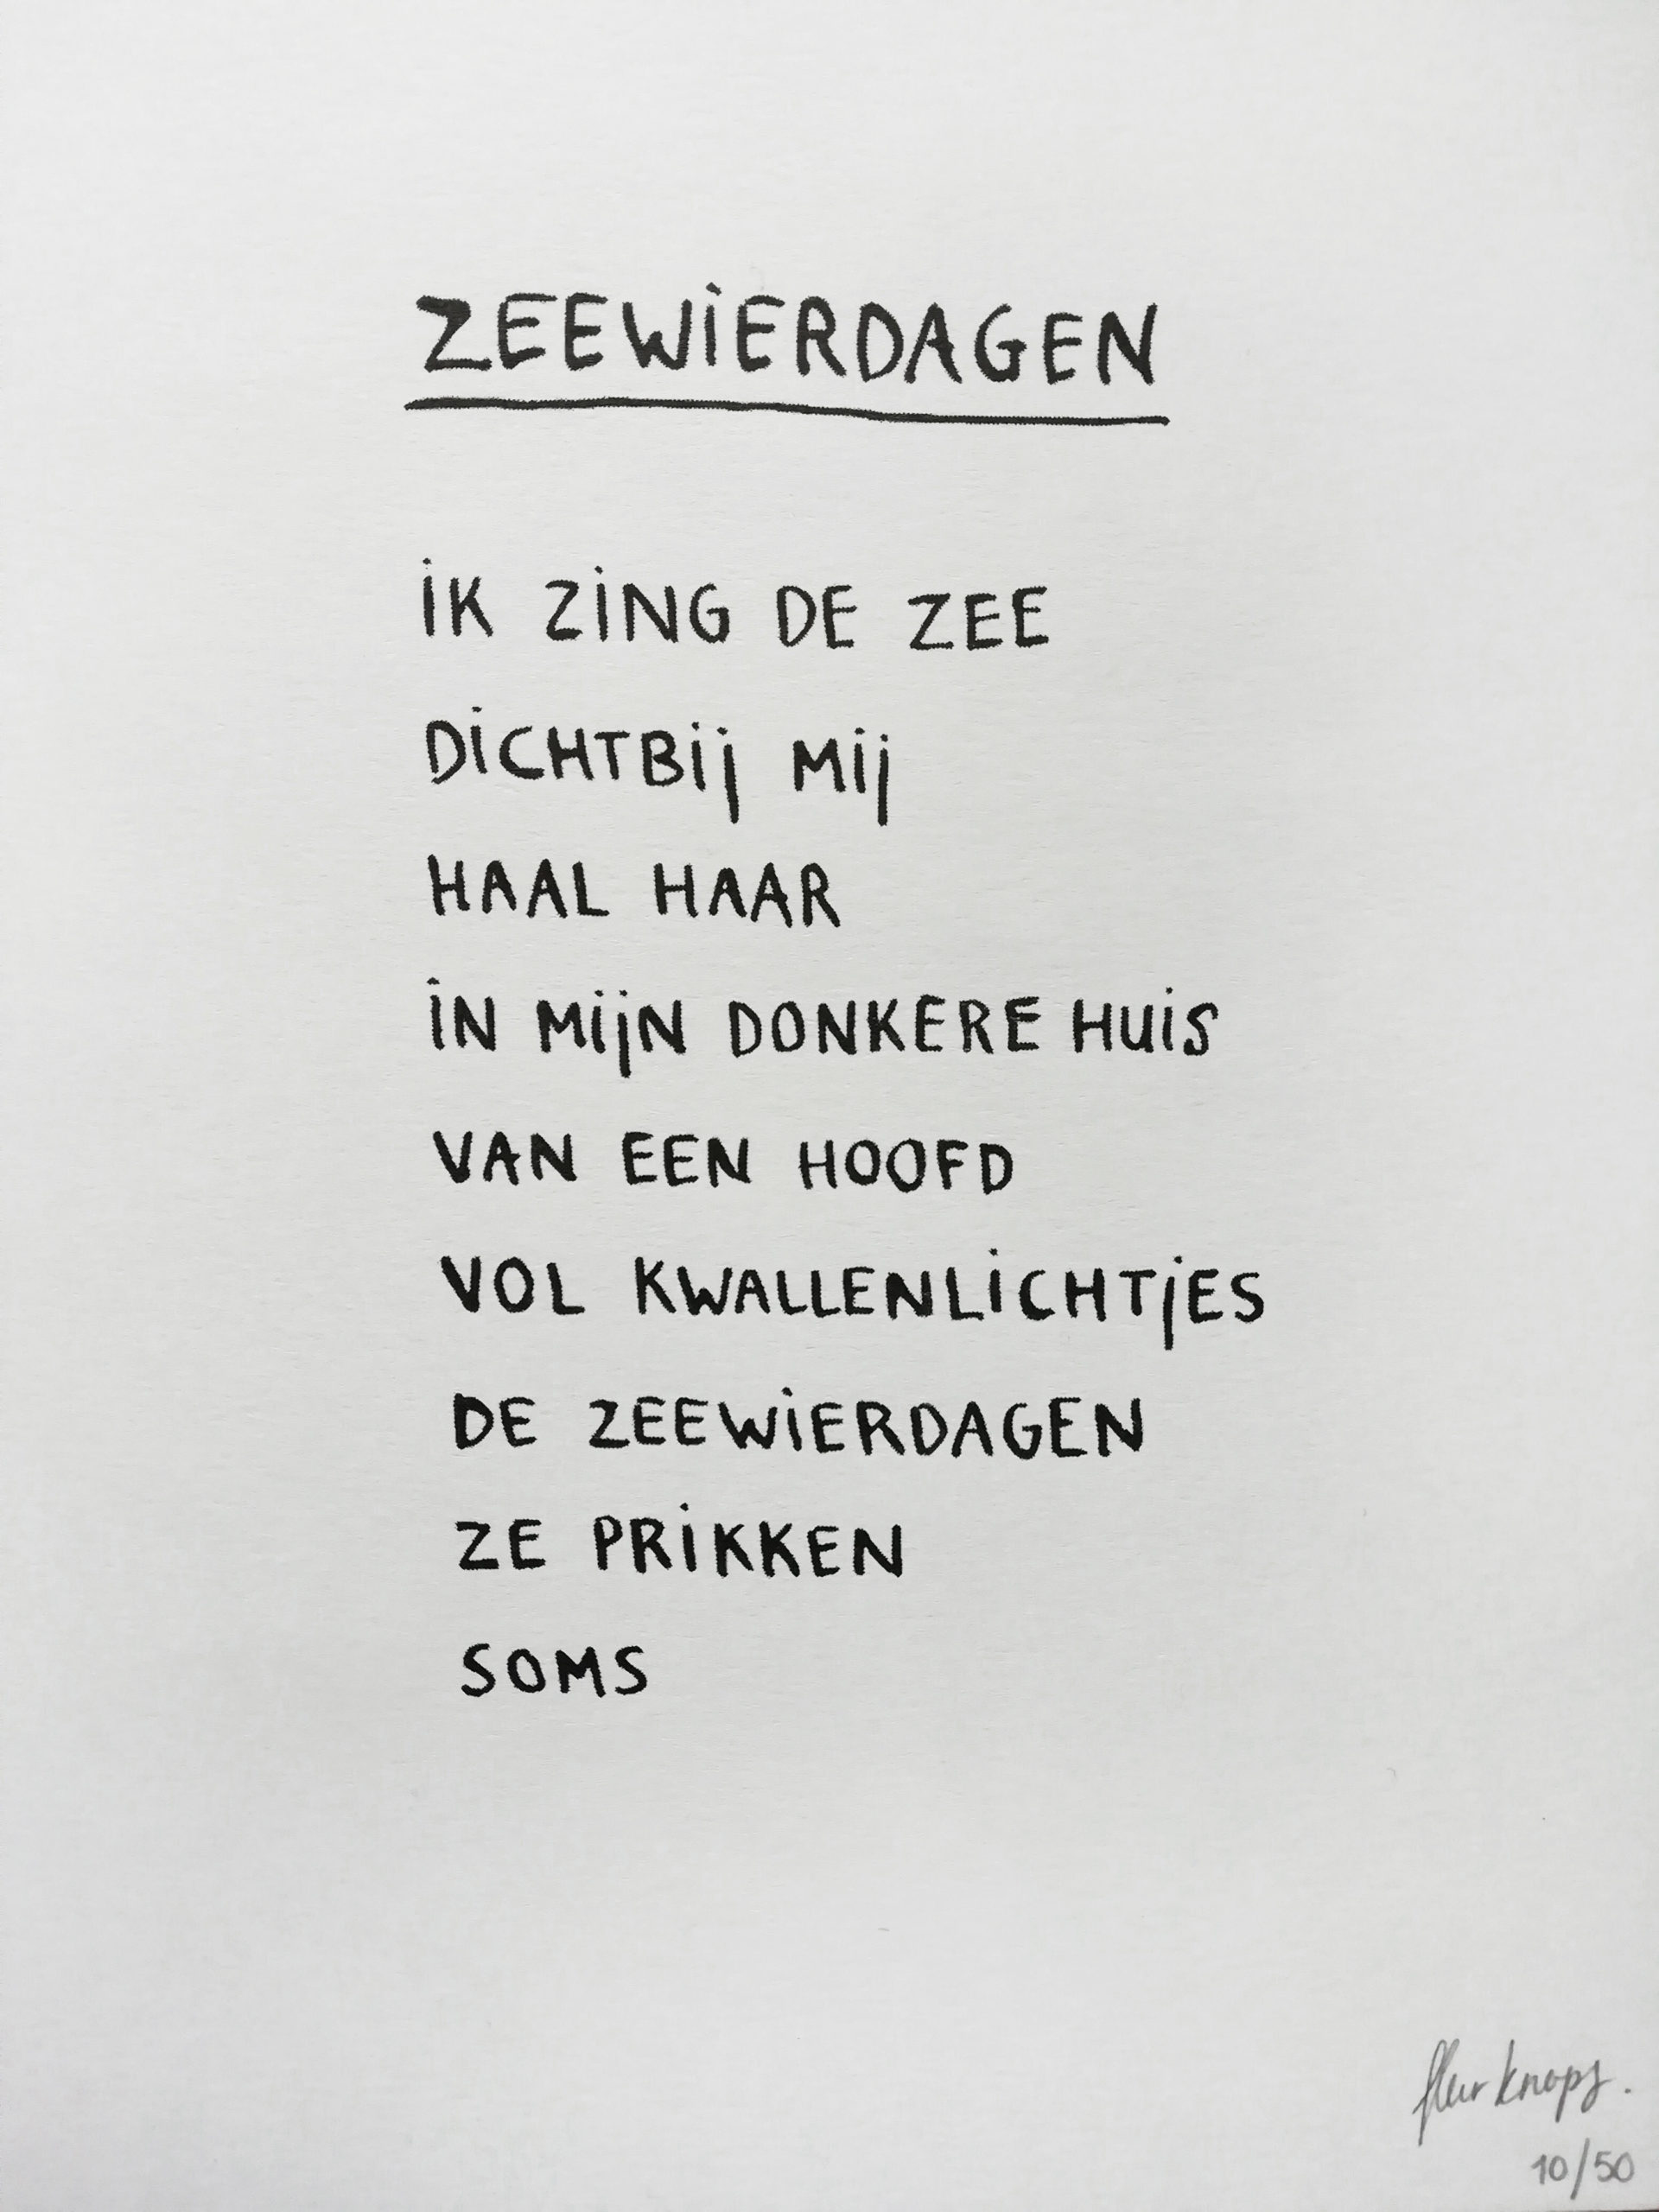 ZEEWIERDAGEN
IK ZING DE ZEE
DICHTBIJ MIJ
HAAL HAAR
IN MIJN DONKERE HUIS
VAN EEN HOOFD
VOL KWALLENLICHTJES
DE ZEEWIERDAGEN
ZE PRIKKEN
SOMS
fleur knops.
10/50